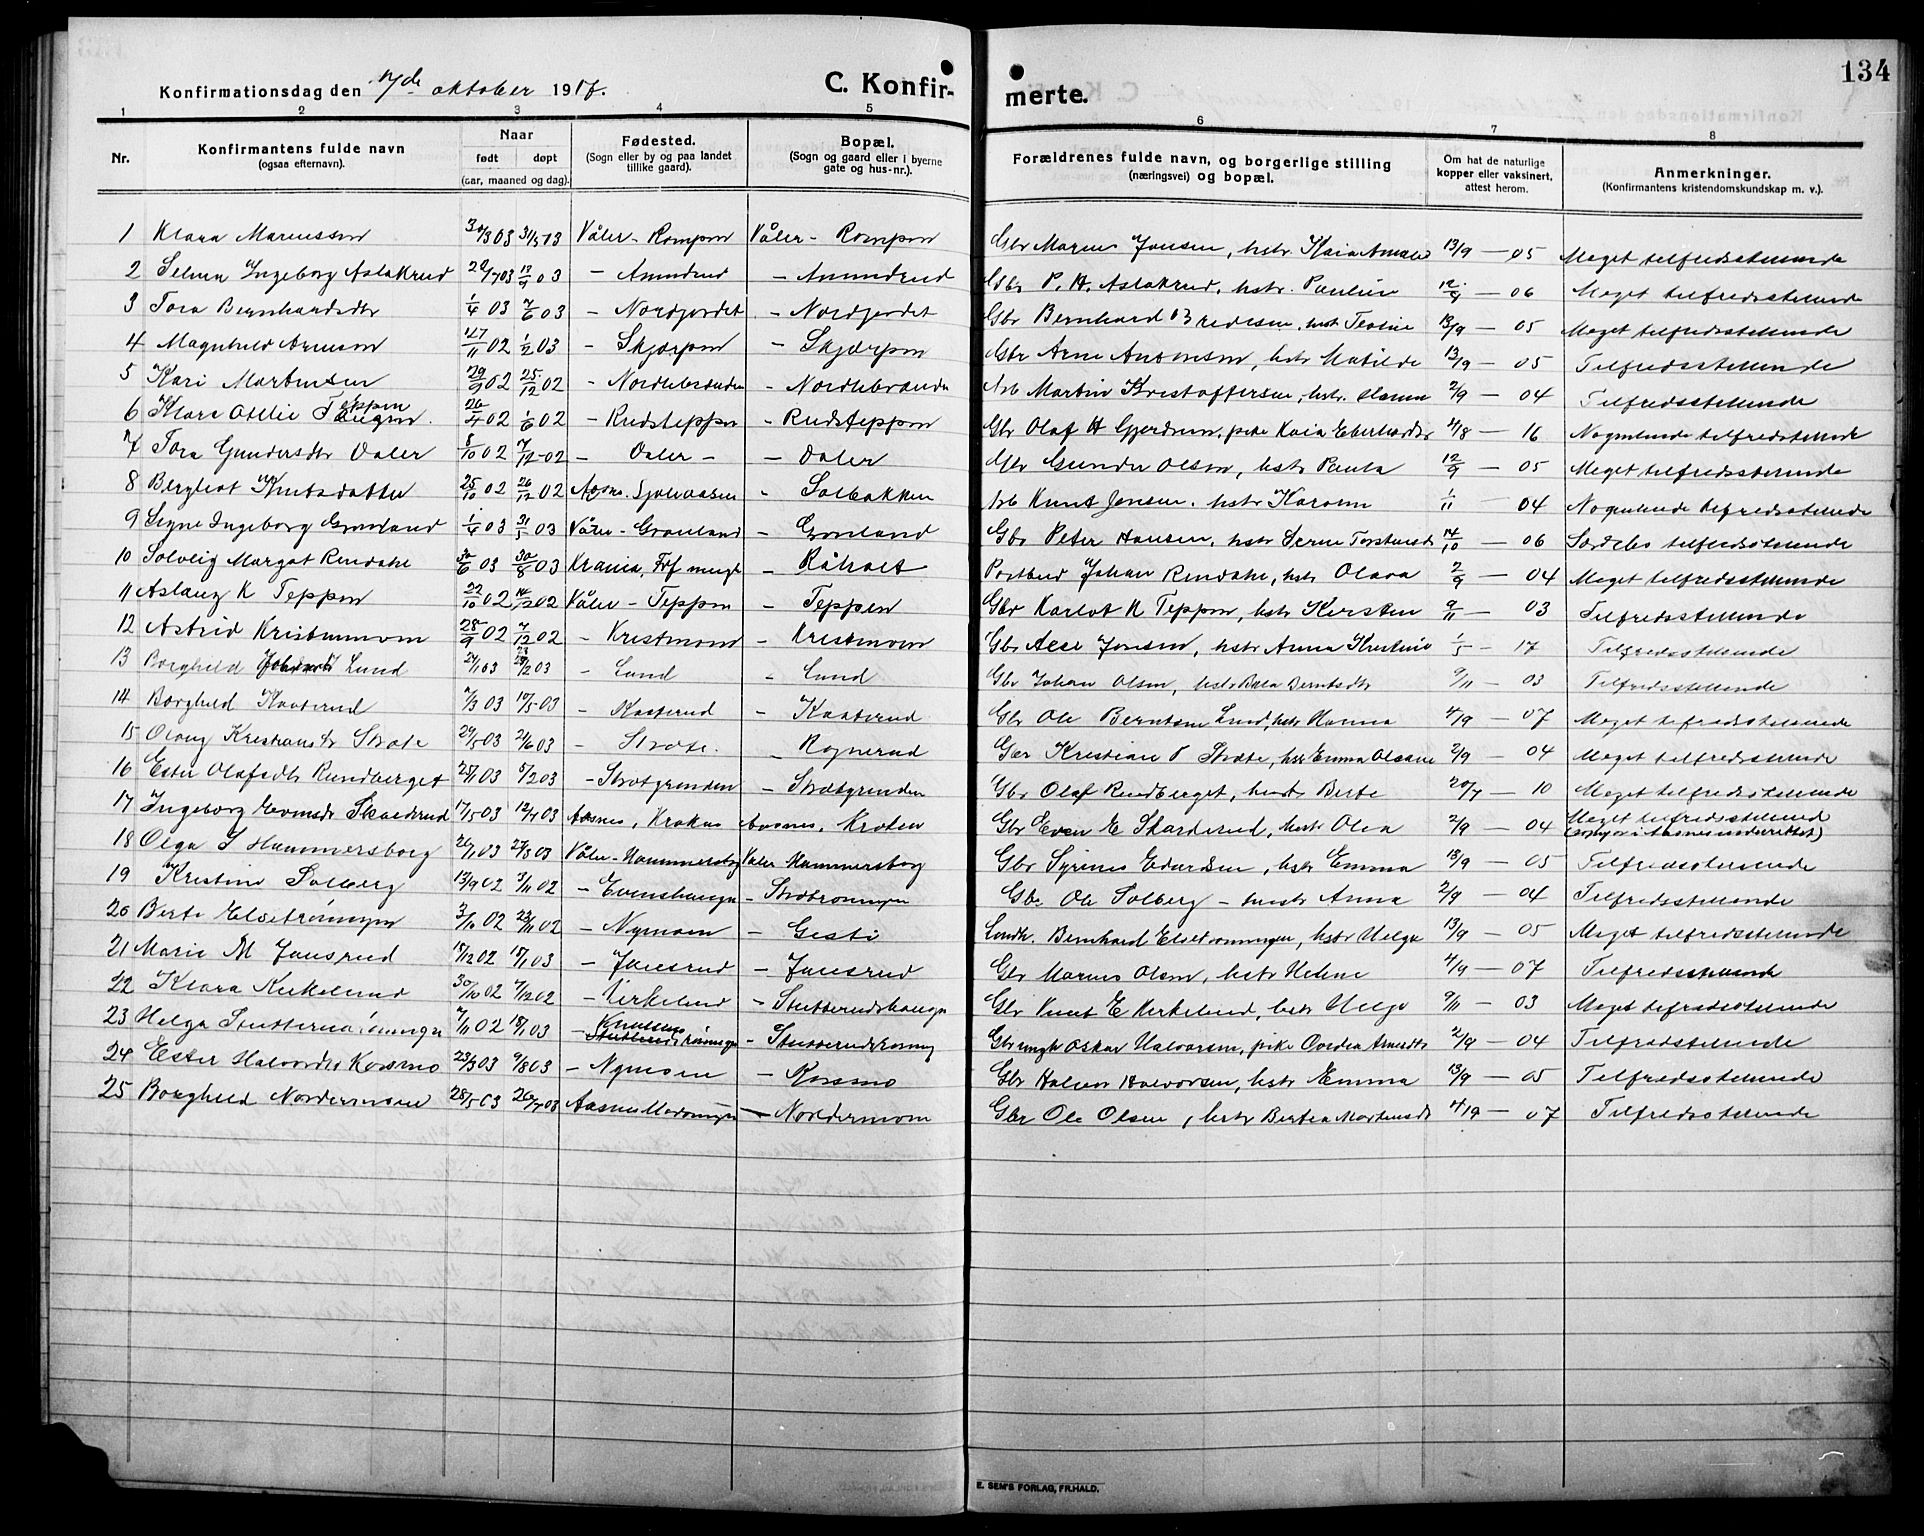 134
Konfirmationsdag den 7de oktober 1917.
C. Konfir-
merte.
1 2 3 4 5
6 7 8
Nr.
Konfirmantens fulde navn
(ogsaa efternavn).
Naar
født døpt
(aar, maaned og dag).
Fødested.
(Sogn eller by og paa landet
tillike gaard).
Bopæl.
(Sogn og gaard eller i byerne
gate og hus-nr.).
Forældrenes fulde navn, og borgerlige stilling
(næringsvei) og bopæl.
Om hat de naturlige
kopper eller vaksinert,
attest herom.
Anmerkninger.
(Konfirmantens kristendomskundskap m. v.).
1 Klara Mariussen 31/5 03 Våler - Rompen Våler - Rompen Gbr Marius Jansen, hstr. Kaia 13/9 — 05 Meget tilfredsstillende
2 Selma Ingeborg Aslakrud 20/7 03 13/9 03 - Amundrud - Amundrud Gbr P. H. Aslakrud, hstr. Pauline 12/9 — 06 Meget tilfredsstillende
3 Tora Bernhardsdtr 1/4 03 7/6 03 - Nordjordet - Nordjordet Gbr Bernhard Bredesen, hstr 13/9 — 05 Meget tilfredsstillende
4 Magnhild Arnesen 17/11 02 1/2 03 - Skjærpen - Skjærpen Gbr Arne Antonsen, hstr Matilde 13/9 — 05 Tilfredsstillende
5 Kari Martinsen 29/9 02 25/12 02 Arb Martin Kristoffersen, hstr. Hanna 2/9 — 04 Tilfredsstillende
6 Klara Otilie Teppen 26/4 02 1/6 02 - Rudsteppen - Rudsteppen Gbr Olaf H Gjerdrum, pike Kaia 4/8 — 16 Nogenlunde tilfredsstillende
7 Tora Gundersdtr Daler 8/10 02 7/12 02 - Daler - - Daler Gbr Gunder Olsen, hstr Paula 12/9 — 05 Meget tilfredsstillende
8 Bergliot Knutsdatter 25/10 02 26/12 02 Aasnes. - Solbakken Arb Knut Jensen, hstr Karoen 1/11 — 04 Nogenlunde tilfredsstillende
9 Signe Ingeborg Grønland 1/4 03 31/5 03 Våler - Grønland - Grønland Gbr Peter Hansen, hstr 14/10 — 06 Særdeles tilfredsstillende
10 Solveig Margot Rendahe 30/6 03 30/8 03 Krania, - Råholt Postbud Johan Rendahe, hstr Olava 2/9 — 04 Meget tilfredsstillende
11 Aslaug K Teppen 22/10 02 14/12 02 Våler - Teppen - Teppen Gbr Karlot K Teppen, hstr Kersten 9/11 — 03 Tilfredsstillende
12 Astrid Kristenmoen 28/9 02 7/12 02 - Kristmoen - Kristmoen Gbr Jonsen, hstr Anna Kristine 1/5 — 17 Tilfredsstillende
13 Borghild Lund 24/1 03 - Lund - Lund Gbr Johan Olsen, hstr Berntsdtr 9/11 — 03 Tilfredsstillende
14 Borghild Kaaterud 7/3 03 10/5 03 - Kaaterud - Kaaterud Gbr Ole Berntsen Lund, hstr Hanna 4/9 — 07 Meget tilfredsstillende
15 Olaug Kristiansdtr Stræte 29/5 03 21/6 03 - Stræte. - Rognerud Gbr Kristian P Stræte, hstr Emma 2/9 — 04 Meget tilfredsstillende
16 Ester Olafsdtr Rundberget 25/1 03 5/2 03 - Strætgrenden - Strætgrenden Gbr Olaf Rundberget, hstr Berte 20/7 — 10 Meget tilfredsstillende
17 Ingeborg Evensdtr Skarderud 17/5 03 12/7 03 Aasnes, Aasnes, Gbr Even E Skarderud, hstr Olea 2/9 — 04 Meget tilfredsstillende
18 Olga S Hammersborg 26/1 03 29/3 03 Våler - Hammersborg Våler Hammersborg Gbr Syrinus Edvardsen, hstr Emma 13/9 — 05 Tilfredsstillende
19 Kristine Solberg 13/9 02 3/11 02 - Evenshaugen Gbr Ole Solberg - hustr Anna 2/9 — 04 Tilfredsstillende
20 Berte Elsetrøningen 3/10 02 23/11 02 - Nymoen - Gesti Landh. Bernhard Elsetrøningen, hstr Helga 13/9 — 05 Meget tilfredsstillende
21 Marie M Jansrud 15/12 02 18/1 03 - Jansrud - Jansrud Gbr Marius Olsen, hstr Helene 4/9 — 07 Tilfredsstillende
22 Klara Kirkelund 30/10 02 7/12 02 - Kirkelund - Stutterudshaugen Gbr Knut E Kirkelund, hstr Helga 9/11 — 03 Meget tilfredsstillende
23 Helga 7/11 02 18/1 03 Gbr ungk Oskar Halvorsen, pike 2/9 — 04 Tilfredsstillende
24 Ester Halvorsdtr Kossmo 23/3 03 9/8 03 - Nymoen - Kossmo Gbr Halvor Halvorsen, hstr Emma 13/9 — 05 Tilfredsstillende
25 Borghild Nordermoen 28/5 03 26/7 03 Aasnes - Nordermoen Gbr Ole Olsen, hstr Bertea Mortensdtr 4/9 — 07 Tilfredsstillende
E. SEM'S FORLAG, FR.HALD.